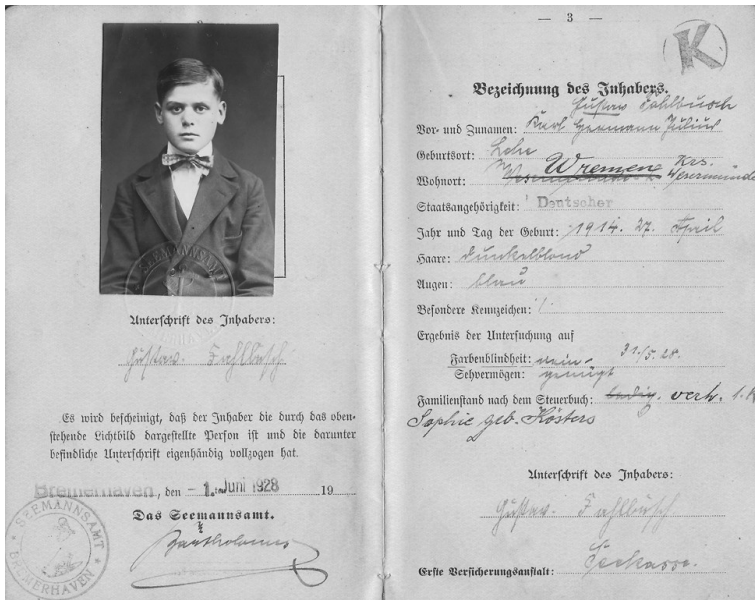 Unterschrift des Inhabers:
Gustav. Fahlbusch
Es wird bescheinigt, daß der Inhaber die durch das oben-
stehende Lichtbild dargestellte Person ist und die darunter
befindliche Unterschrift eigenhändig vollzogen hat.
Bremerhaven, den - 1. Juni 1928 19
Das Seemannsamt.
SEEMANNSAMT
BREMERHAVEN
— 3 —
K
Bezeichnung des Inhabers.
Gustav Fahlbusch
Vor- und Zunamen: Karl Hermann Julius
Geburtsort: Lehe
Wohnort: Wremen Krs.
Wesermünde
Staatsangehörigkeit: Deutscher
Jahr und Tag der Geburt: 1914. 27. April
Haare: dunkelblond
Augen: blau
Besondere Kennzeichen: /.
Ergebnis der Untersuchung auf
Farbenblindheit: nein 31/5. 28.
Sehvermögen: genügt
Familienstand nach dem Steuerbuch: ledig. verh. 1.
Sophie geb. Kösters
Unterschrift des Inhabers:
Gustav. Fahlbusch
Erste Versicherungsanstalt: Seekasse.